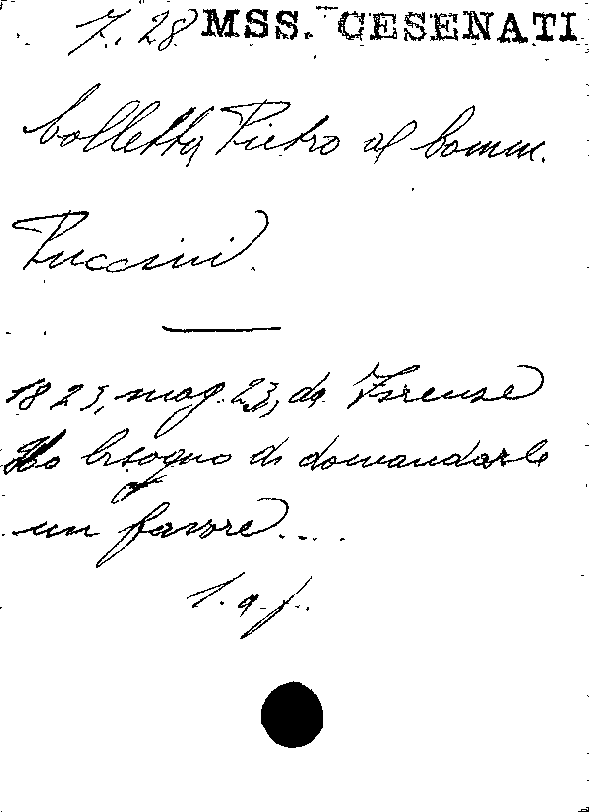 7.28 MSS. CESENATI
Colletta Pietro al Comm.
Puccini.
1823, mag. 23, da Firenze
Ho bisogno di domandarle
un favore....
l. a. f.